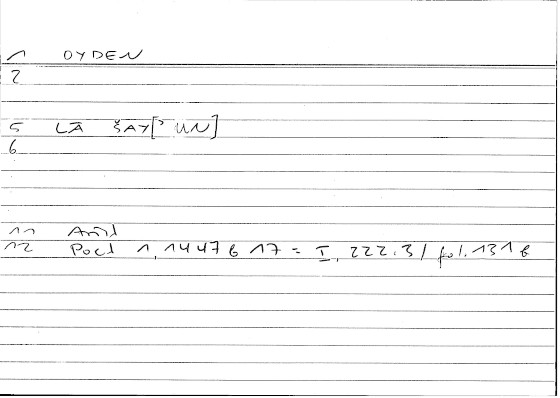 1 OYDEN
2
5 LĀ ŠAY[ʾ UN]
6
11
12 Pocl 1,1447 b 17 = I, 222.3 / fol. 131 b